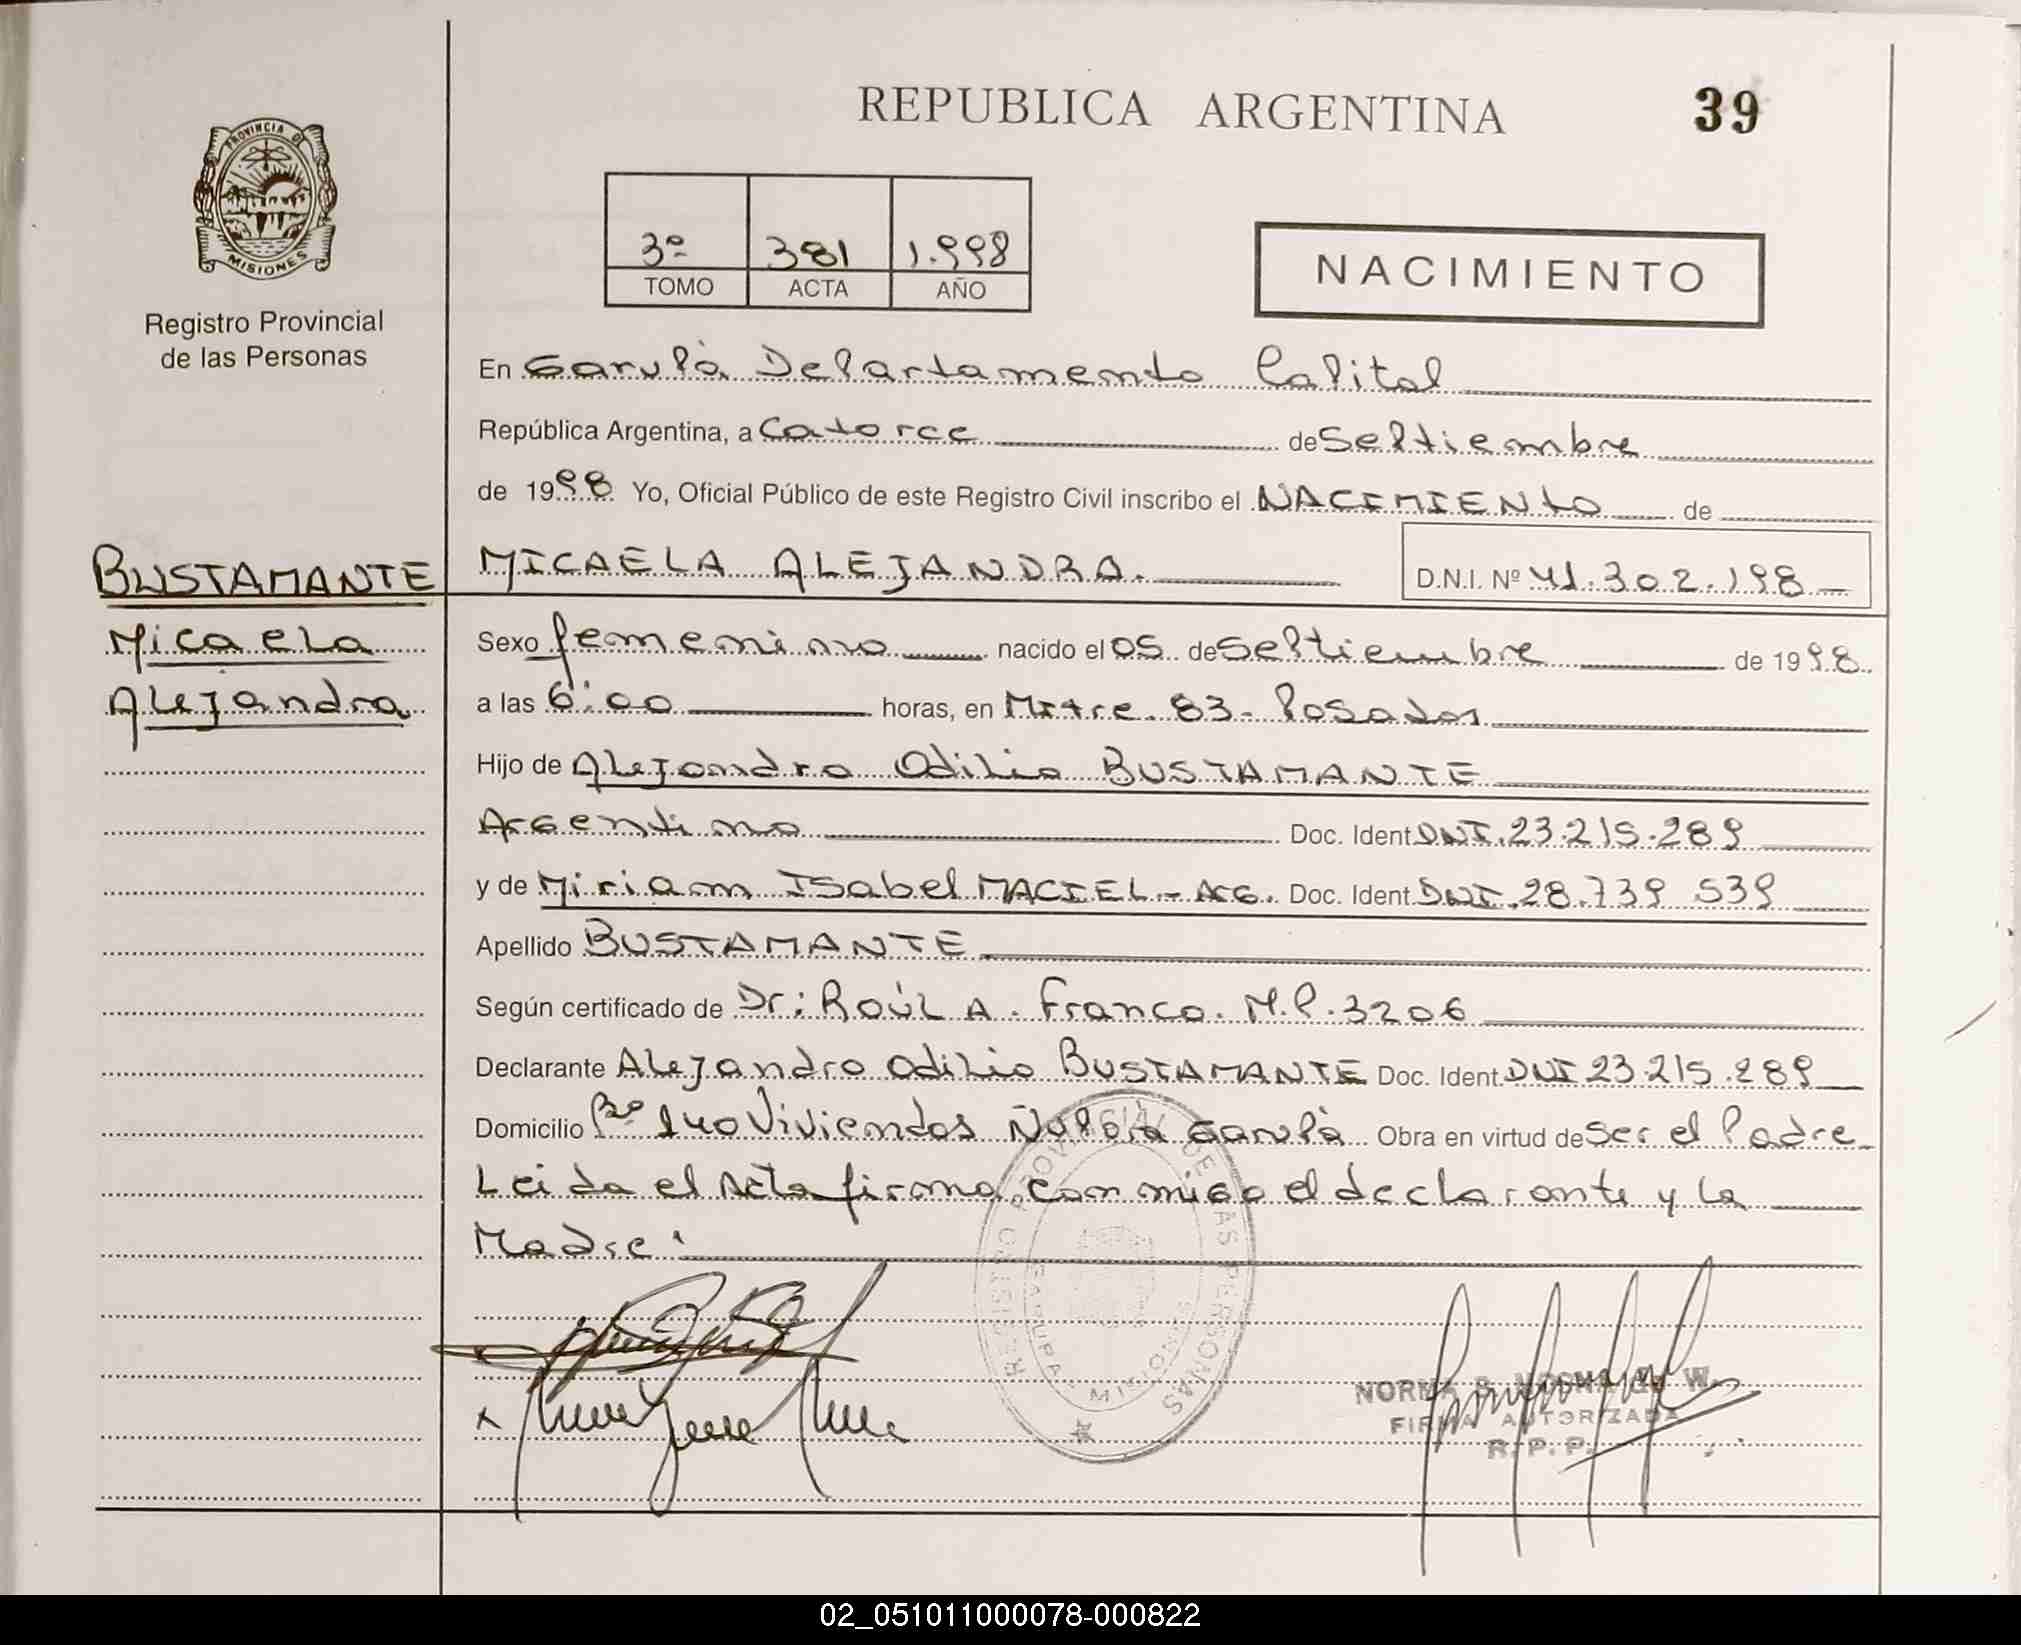 REPUBLICA ARGENTINA
39
PROVINCIA DE
MISIONES
Registro Provincial
de las Personas
3º 381 1.998
TOMO ACTA AÑO
NACIMIENTO
En Garupá Departamento Capital
República Argentina, a Catorce de Septiembre
de 1998 Yo, Oficial Público de este Registro Civil inscribo el NACIMIENTO de
BUSTAMANTE
Micaela
Alejandra
MICAELA ALEJANDRA. D.N.I. Nº 41.302.198
Sexo femenino nacido el 05 de Septiembre de 1998.
a las 6:00 horas, en Mitre. 83 - Posadas
Hijo de Alejandro Odilio BUSTAMANTE
Argentino Doc. Ident DNI.23.215.289
y de Miriam Isabel MACIEL - ARG. Doc. Ident. DNI.28.739 539
Apellido BUSTAMANTE
Según certificado de Dr: RAÚL A. Franco. M.P. 3206
Declarante Alejandro Odilio BUSTAMANTE Doc. Ident. DNI 23.215.289
Domicilio Bº 140 Viviendas Ñu Porá Garupá Obra en virtud de Ser el Padre
Leida el Acta firma, con migo el declarante y la
Madre:
REGISTRO PROVINCIAL DE LAS PERSONAS
GARUPA - MISIONES
NORMA
FIRMA AUTORIZADA
R.P.P.
02_051011000078-000822